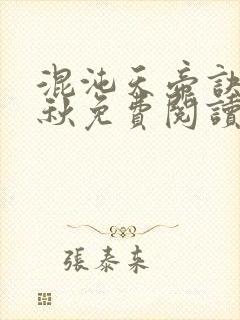 混沌天帝訣
秋免費閱讀
張泰来